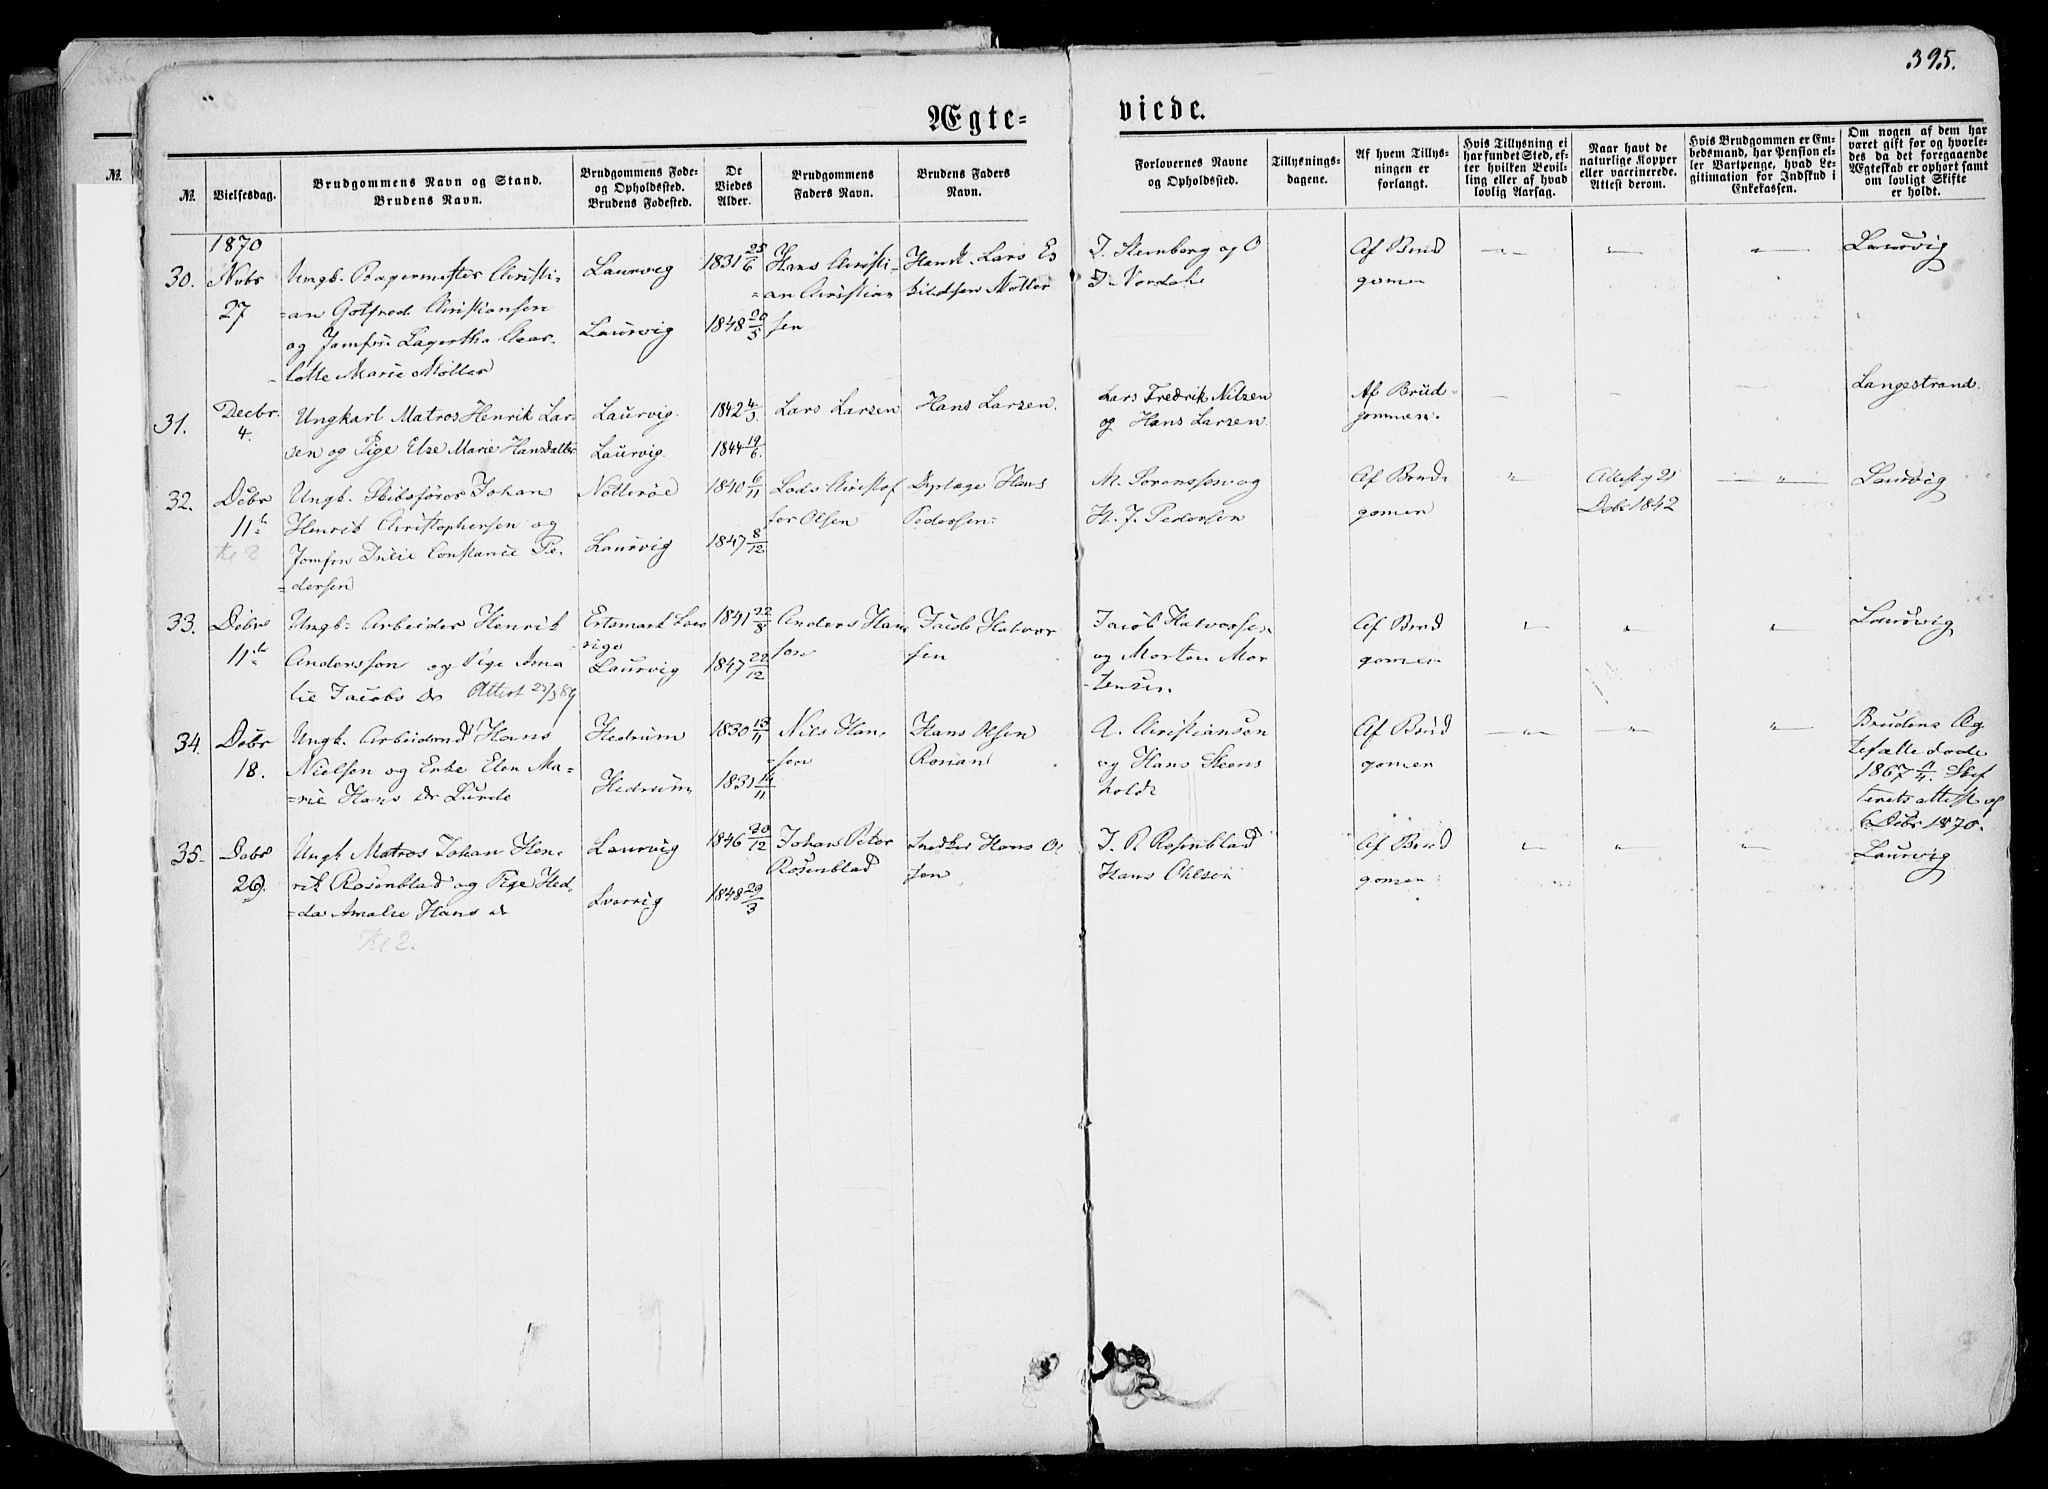 395.
Ægte=
viede.
№
№
Vielsesdag.
Brudgommens Navn og Stand.
Brudens Navn.
Brudgommens Føde-
og Opholdssted.
Brudens Fødested.
De
Viedes
Alder.
Brudgommens
Faders Navn.
Brudens Faders
Navn.
Forlovernes Navne
og Opholdssted.
Tillysnings-
dagene.
Af hvem Tillys-
ningen er
forlangt.
Hvis Tillysning ei
har fundet Sted, ef-
ter hvilken Bevil-
ling eller af hvad
lovlig Aarsag.
Naar havt de
naturlige Kopper
eller vaccinerede.
Attest derom.
Hvis Brudgommen er Em-
bedsmand, har Pension el-
ler Vartpenge, hvad Le-
gitimation for Indskud i
Enkekassen.
Om nogen af dem har
været gift før og hvorle-
des da det foregaaende
Ægteskab er ophørt samt
om lovligt Skifte
er holdt.
1870
30.
Nvbr
27
Ungk. Bagermester Christi-
=an Gotfred Christiansen
og Jomfru Lagertha Char-
lotte Marie Møller
Laurvig
Laurvig
1831 25/6
1848 20/5
Hans Christi-
=an Christian
sen
Handl. Lars Es
kildsen Møller
I. Stenberg og O
I Nordahl
Af Brud
gomen
Laurvig
31.
Decbr.
4.
Ungkarl Matros Henrik Lar-
sen og Pige Else Marie Hansdatter
Laurvig.
Laurvig.
1842 4/3.
1844 19/6.
Lars Larsen
Hans Larsen.
Lars Fredrik Nilsen
og Hans Larsen
Af Brud-
gommen.
Langestrand.
32.
Debr
11te
Ungk. Skibsfører Johan
Henrik Christophersen og
Jomfru Constance Pe-
=dersen
Nøtterøe
Laurvig
1840 6/11
1847 8/12
Lods Christof
fer Olsen
Hans
Pedersen
M. Sørenssen og
H. J. Pedersen
Af Brud-
gomen
Attest 21
Debr 1842
Laurvig
33.
Debr
11te
Ungk. Arbeider Henrik
Anderssen og Pige Ama
lie Jacobs dr Attest 25/3 89
Laurvig
1841 22/8
1847 22/12
Anders Han
sen
Jacob Halvor
sen
Jacob Halvorsen
og Morten Mor
tensen
Af Brud
gomen
Laurvig
34.
Debr
18.
Ungk. Arbeidsmd Hans
Nielsen og Enke Elen Ma-
=rie Hans dr Lunde
Hedrum
Hedrum
1830 13/11
1831 14/11
Nils Han
=sen
Hans Olsen
A. Christiansen
og Hans Steens
holdt
Af Brud
gomen
Brudens Æg
tefælle døde
1867 11/4. Skif
terets attest af
6 Debr 1870.
35.
Debr
26.
Ungk Matros Johan Hen-
rik Rosenblad og Pige Hed-
=da Amalie Hans dr
Laurvig
Laurvig
1846 30/12
1848 29/3
Johan Peter
Rosenblad
Snedker Hans Ol
sen
J. P. Rosenblad
Hans Ohlsen
Af Brud
gomen
Laurvig